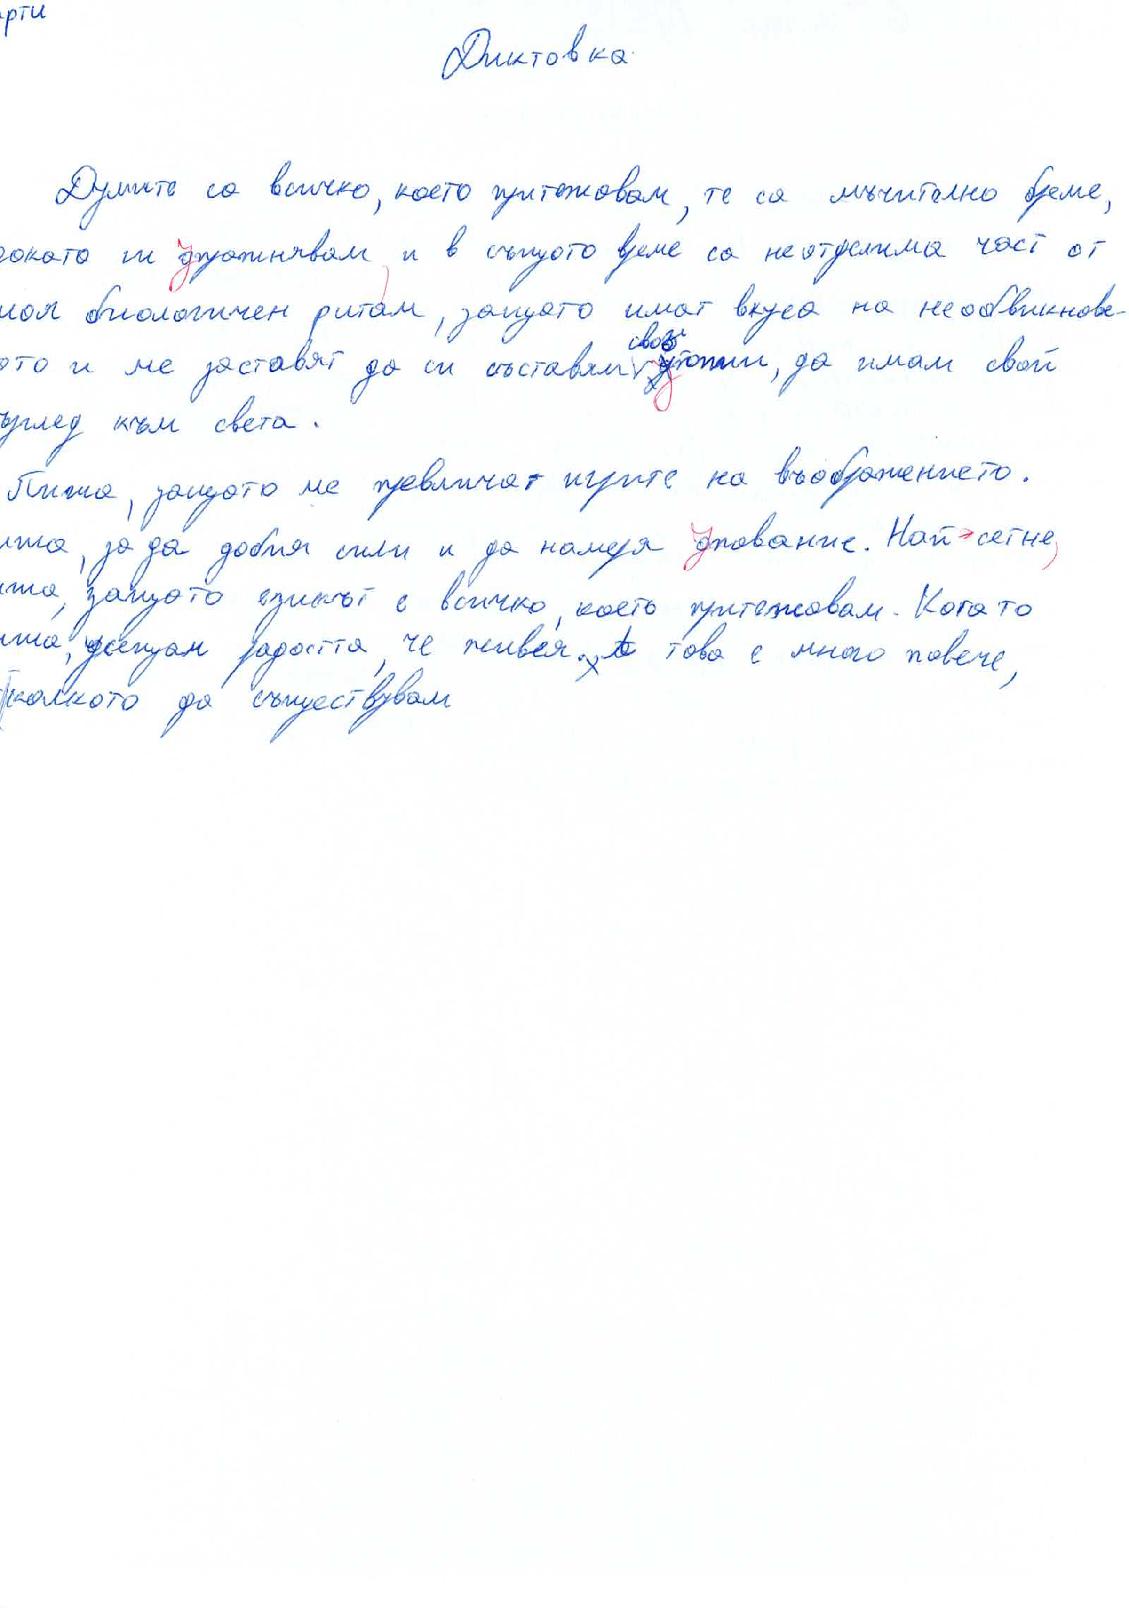 арти
Диктовка
Думите са всичко, което притежавам, те са мъчително бреме,
докато ги упражнявам, и в същото време са неотделима част от
моя биологичен ритам, защото имат вкуса на необвикнове-
ото и ме заставят да си съставям свои утопии, да имам свой
ъзглед към света.
Пиша, защото ме превличат игрите на въображението.
иша, за да добия сили и да намеря упование. Най-сетне,
иша, защото езикът е всичко, което притежавам. Когато
иша, усещам радостта, че живея. А това е много повече,
тколкото да съществувам